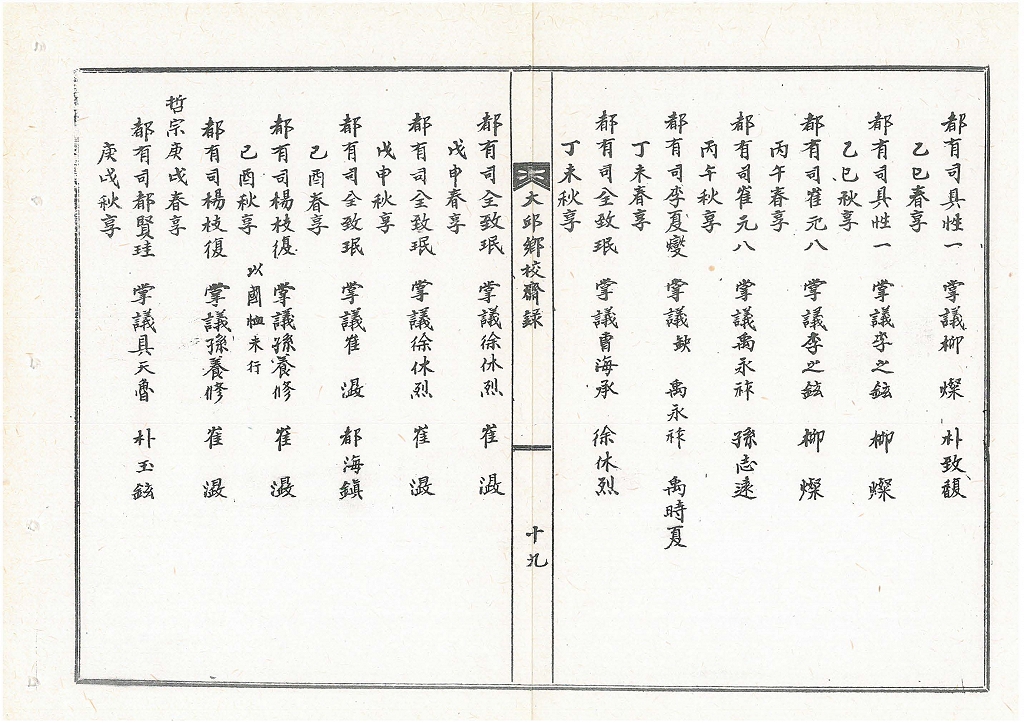 都有司具性一 掌議柳 燦 朴致馥
乙巳春享
都有司具性一 掌議李之鉉 柳 燦
乙巳秋享
都有司崔元八 掌議李之鉉 柳 燦
丙午春享
都有司崔元八 掌議禹永祚 孫志遠
丙午秋享
都有司李夏燮 掌議缺 禹永祚 禹時夏
丁未春享
都有司全致珉 掌議曺海承 徐休烈
丁未秋享
大邱鄕校齋錄
十九
都有司全致珉 掌議徐休烈 崔 溵
戊申春享
都有司全致珉 掌議徐休烈 崔 溵
戊申秋享
都有司全致珉 掌議崔 溵 都海鎭
己酉春享
都有司楊枝復 掌議孫養修 崔 溵
己酉秋享 以國恤未行
都有司楊枝復 掌議孫養修 崔 溵
哲宗庚戌春享
都有司都賢珪 掌議具天魯 朴玉鉉
庚戌秋享